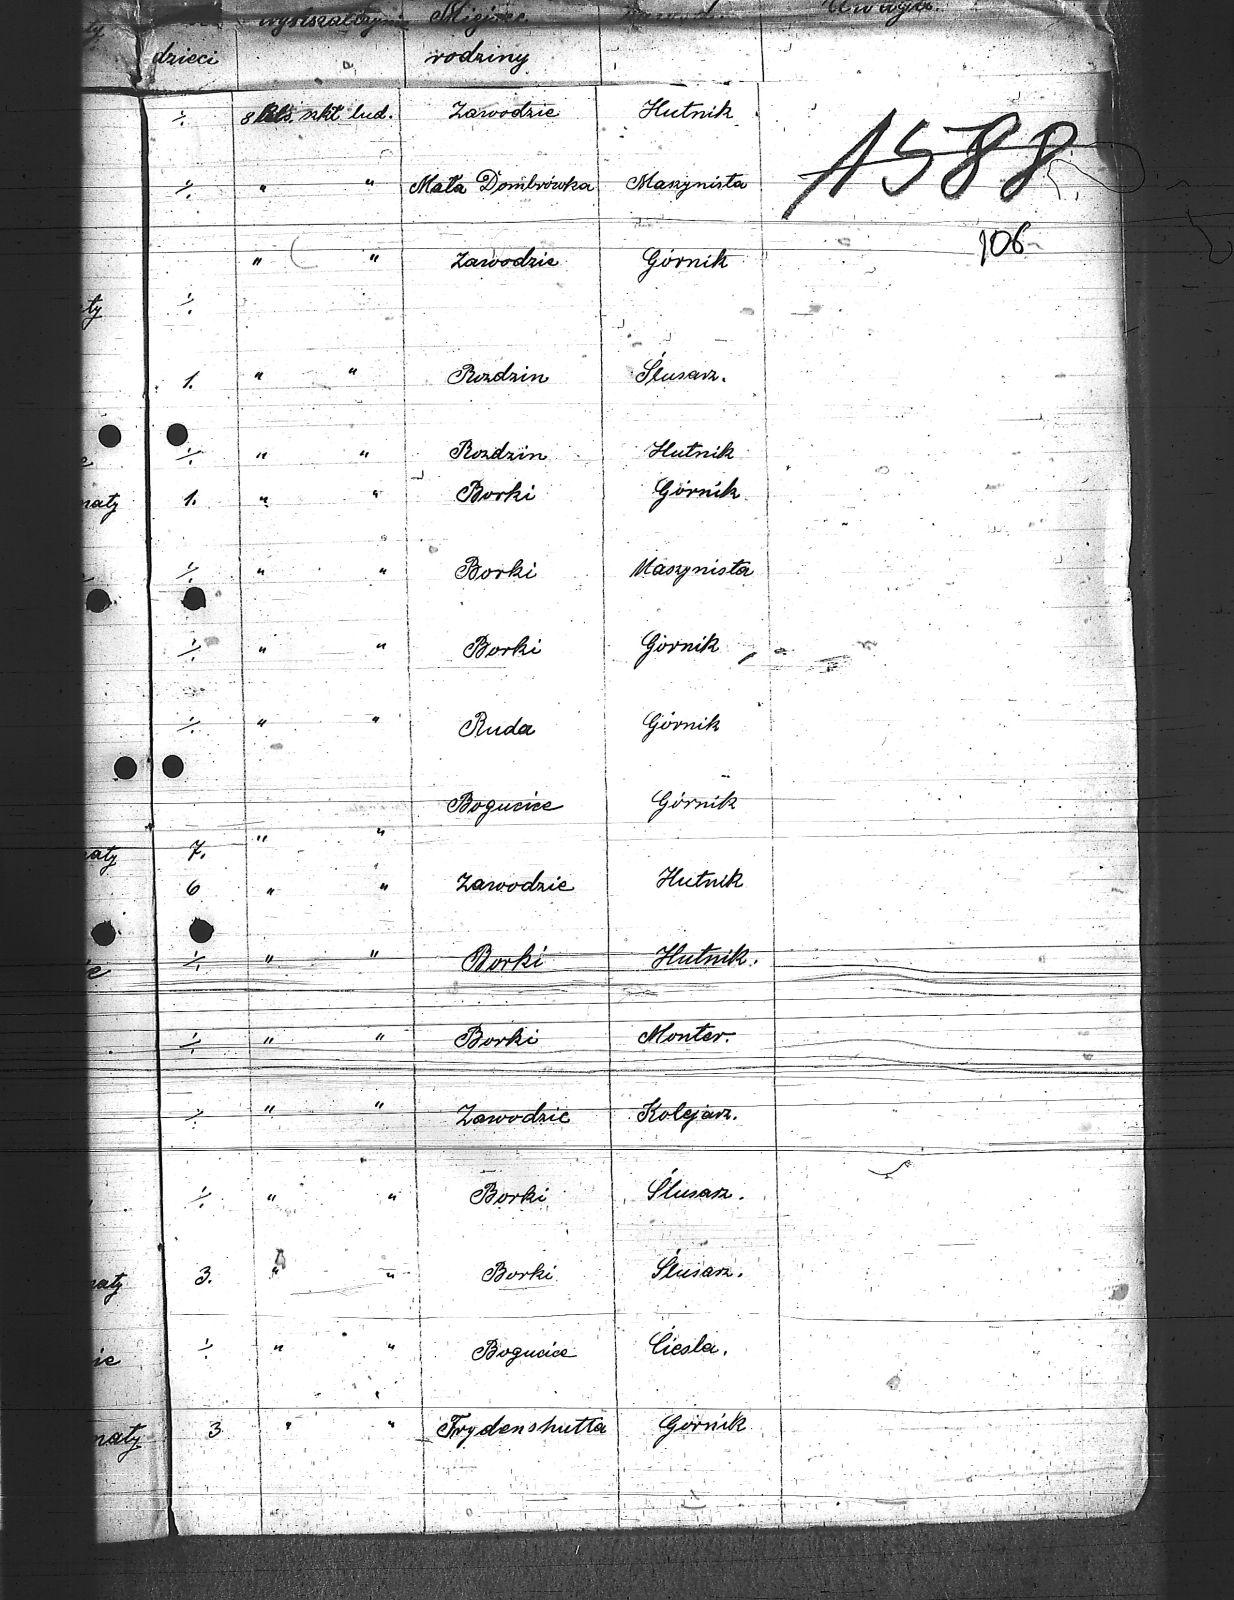 Miejsce Uwaga.
dzieci rodziny
./. 8 kls. szkł. lud. Zawodzie Hutnik
1588
./. " " Mała Dombrówka Maszynista
106
" " Zawodzie Górnik
aty ./.
1. " " Rozdzin Ślusarz.
./. " " Rozdzin Hutnik
naty 1. " " Borki Górnik
./. " " Borki Maszynista
./. " " Borki Górnik
./. " " Ruda Górnik
Bogucice Górnik
naty 7. " "
6 " " Zawodzie Hutnik
./. " " Borki Hutnik.
./. " " Borki Monter.
./. " " Zawodzie Kolejarz.
./. " " Borki Ślusarz.
naty 3. " " Borki Ślusarz.
ie ./. " " Bogucice Cieśla.
naty 3 " " Frydenshutta Górnik